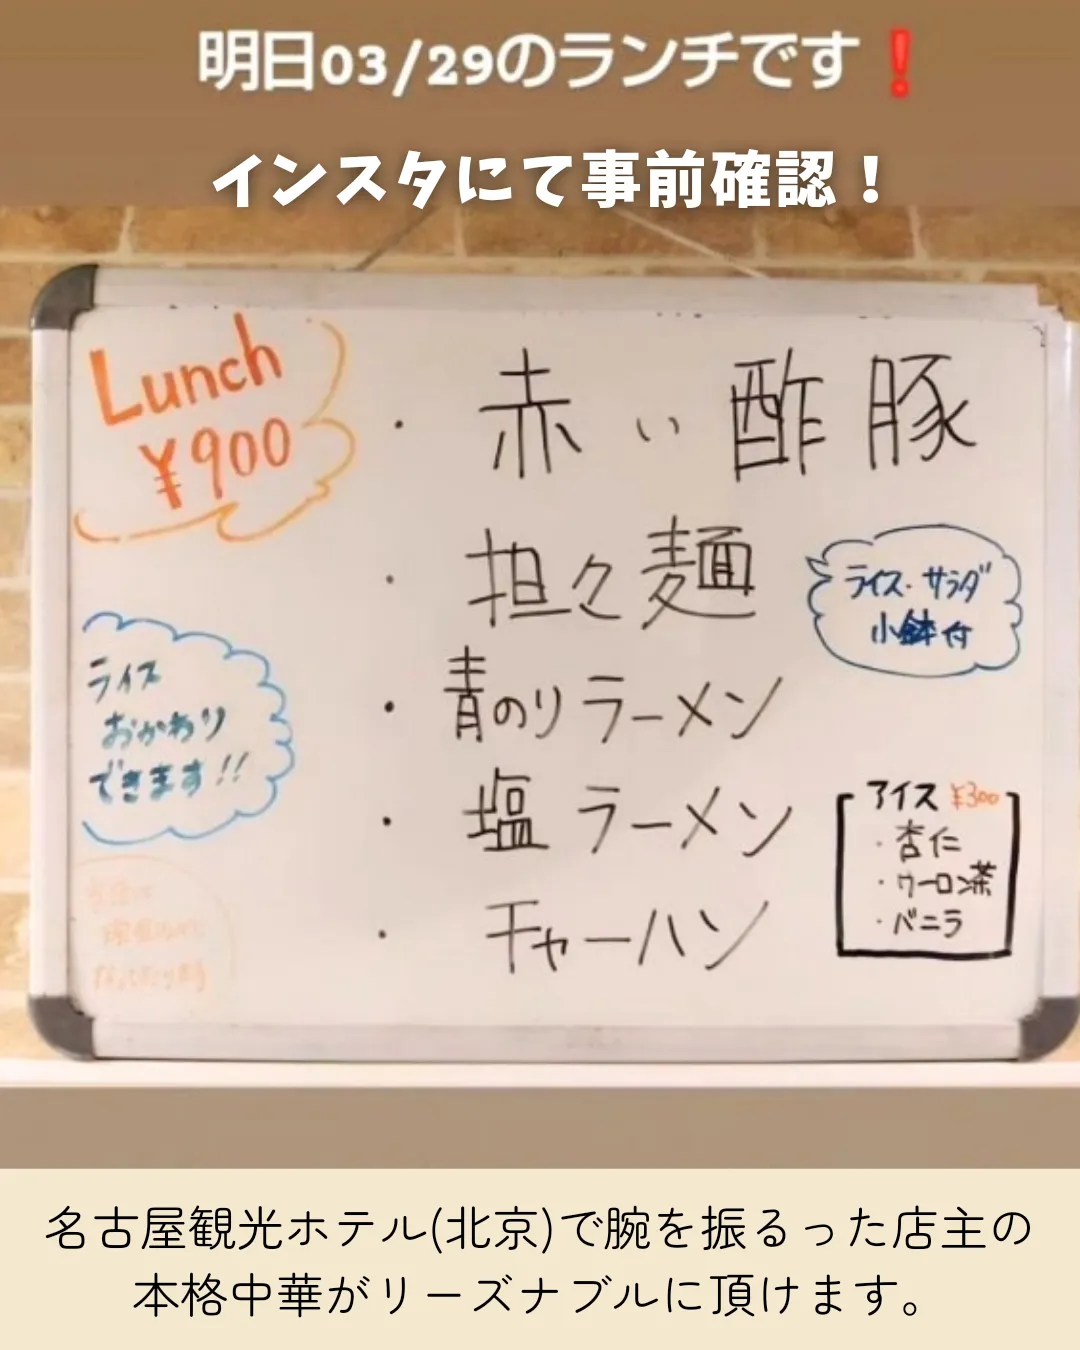 明日03/29のランチです❗
インスタにて事前確認！
Lunch
¥900
・赤い酢豚
・担々麺
ライス・サラダ
小鉢付
・青のりラーメン
・塩ラーメン
・チャーハン
ライス
おかわり
できます!!
アイス ¥300
・杏仁
・ウーロン茶
・バニラ
名古屋観光ホテル(北京)で腕を振るった店主の
本格中華がリーズナブルに頂けます。